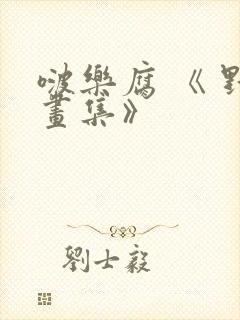 啵樂腐《野
畫集》
劉士毅